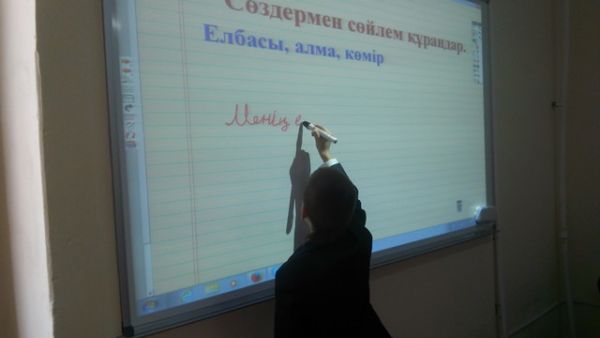 Сөздермен сөйлем құраңдар.
Елбасы, алма, көмір
Менің е